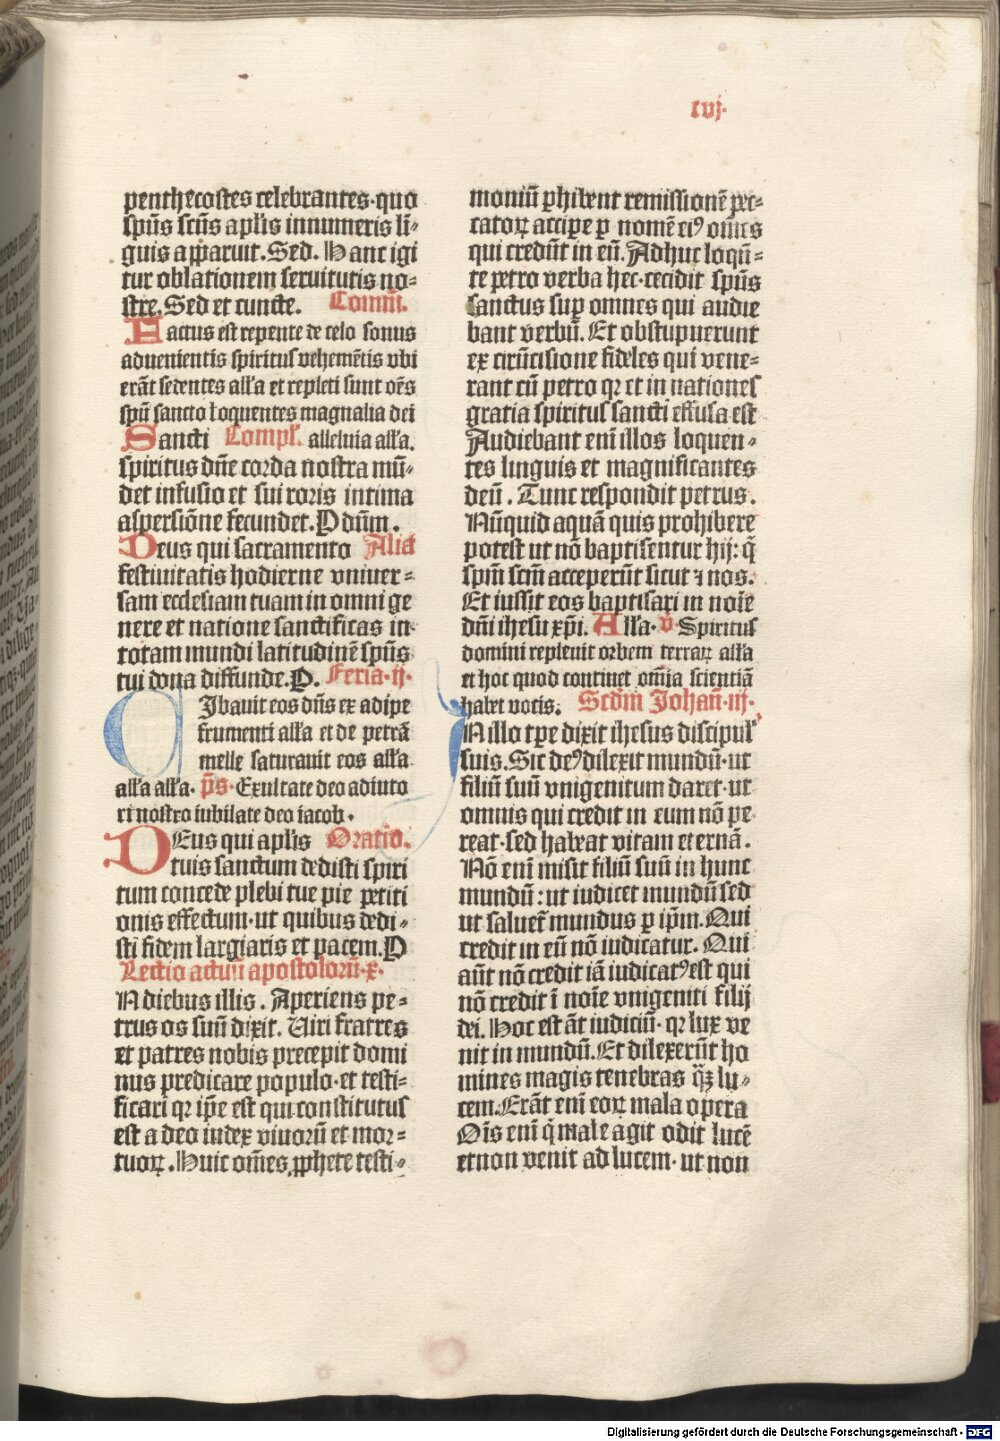 cvj.
penthecostes celebrantes·quo
spūs scūs aplīs innumeris lī-
guis apparuit. Sed. Hanc igi
tur oblationem seruitutis no-
stre. Sed et cuncte. Comm̄.
Factus est repente de celo sonus
aduenientis spiritus vehemētis vbi
erāt sedentes all'a et repleti sunt oēs
spū sancto loquentes magnalia dei
Sancti Compl'. alleluia all'a.
spiritus dn̄e corda nostra mū-
det infusio et sui roris intima
aspersiōne fecundet. P dn̄m.
Deus qui sacramento Alia
festiuitatis hodierne vniuer-
sam ecclesiam tuam in omni ge
nere et natione sanctificas in
totam mundi latitudinē spūs
tui dona diffunde. P. Feria·ij·
CIbauit eos dn̄s ex adipe
frumenti all'a et de petrā
melle saturauit eos all'a
all'a all'a. p̄s· Exultate deo adiuto
ri nostro iubilate deo iacob.
DEus qui aplīs Oratio.
tuis sanctum dedisti spiri
tum concede plebi tue pie petiti
onis effectum·ut quibus dedi-
sti fidem largiaris et pacem. P
Lectio actuū apostolorū·x·
N diebus illis. Aperiens pe-
trus os suū dixit. Uiri fratres
et patres nobis precepit domi
nus predicare populo·et testi-
ficari qꝛ ip̄e est qui constitutus
est a deo iudex viuorū et mor-
tuoꝝ. Huic om̄es ꝓphete testi-
moniū ꝑhibent remissionē pec-
catoꝝ accipe ꝑ nomē eiꝰ om̄es
qui credūt in eū. Adhuc loqū-
te petro verba hec·cecidit spūs
sanctus suꝑ omnes qui audie
bant verbū. Et obstupuerunt
ex circūcisione fideles qui vene-
rant cū petro qꝛ et in nationes
gratia spiritus sancti effusa est
Audiebant enī illos loquen-
tes linguis et magnificantes
deū. Tunc respondit petrus.
Nūquid aquā quis prohibere
potest ut nō baptisentur hij: q̄
spm̄ scm̄ acceperūt sicut ⁊ nos.
Et iussit eos baptisari in noīe
dn̄i ihesu xp̄i. All'a. v̄· Spiritus
domini repleuit orbem terraꝝ all'a
et hoc quod continet om̄ia scientiā
habet vocis. Scdm̄ Johan̄·iij·
N illo tp̄e dixit ihesus discipul'
suis. Sic deꝰ dilexit mundū·ut
filiū suū vnigenitum daret·ut
omnis qui credit in eum nō pe
reat·sed habeat vitam eternā.
Nō enī misit filiū suū in hunc
mundū: ut iudicet mundū sed
ut saluet᷑ mundus ꝑ ip̄m. Qui
credit in eū nō iudicatur. Qui
aūt nō credit iā iudicatꝰ est qui
nō credit ī noīe vnigeniti filij
dei. Hoc est āt iudiciū·qꝛ lux ve
nit in mundū. Et dilexerūt ho
mines magis tenebras q̄ꝫ lu-
cem. Erāt enī eoꝝ mala opera
Oīs enī q̄ male agit odit lucē
et non venit ad lucem·ut non
Digitalisierung gefördert durch die Deutsche Forschungsgemeinschaft - DFG